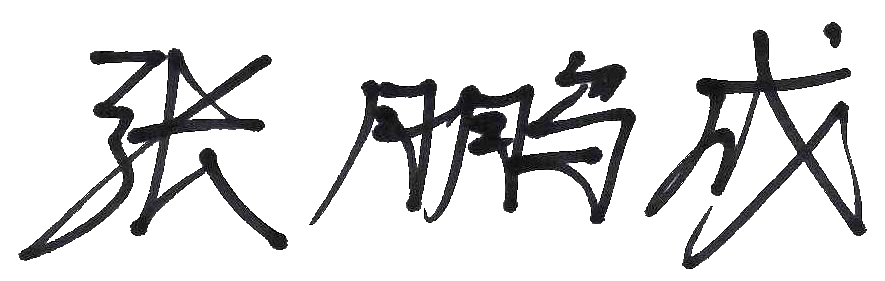 张鹏成